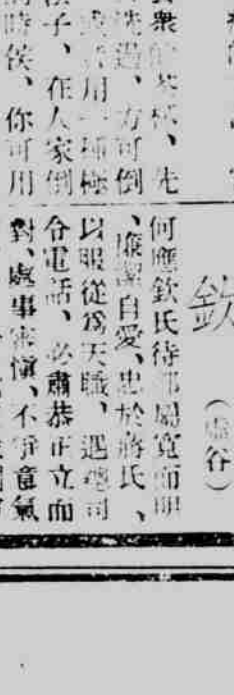 欽
（虛谷）
何應欽氏待部屬寬而明
、廉潔自愛、忠於蔣氏、
以服從爲天職、遇總司
令電話、必肅恭正立而
對、處事審愼、不爭意氣
衆 茶杯、先
洗過、方可倒
用一種極
子、在人家倒
時侯、你可用